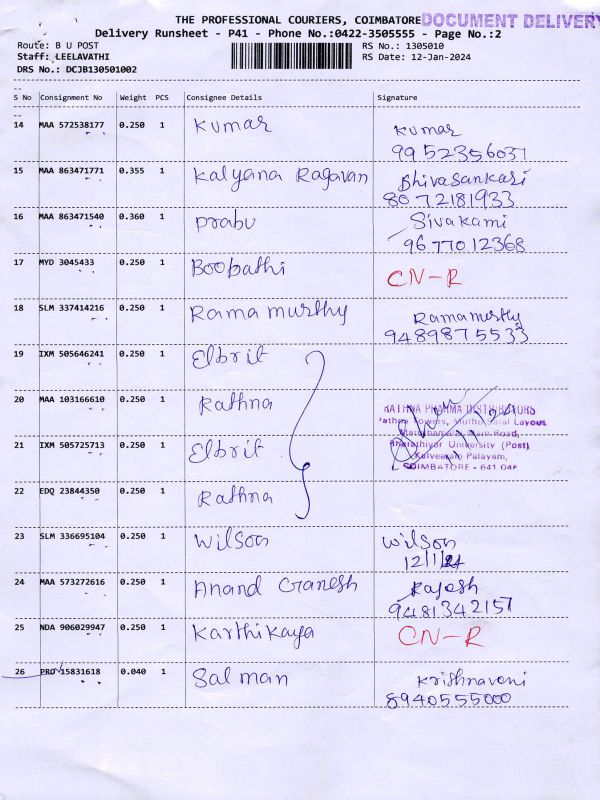 THE PROFESSIONAL COURIERS, COIMBATORE DOCUMENT DELIVERY
Delivery Runsheet - P41 - Phone No.:0422-3505555 - Page No.:2
Route: B U POST RS No.: 1305010
Staff: LEELAVATHI RS Date: 12-Jan-2024
DRS No.: DCJB130501002
S No Consignment No Weight PCS Consignee Details Signature
14 MAA 572538177 0.250 1 Kumar Kumar
9952356037
15 MAA 863471771 0.355 1 Kalyana Ragavan Bhivasankari
8072181933
16 MAA 863471540 0.360 1 Prabu Sivakami
9677012368
17 MYD 3045433 0.250 1 Boobathi CN-R
18 SLM 337414216 0.250 1 Rama murthy Ramamurthy
9489875533
19 IXM 505646241 0.250 1 Elbrit
20 MAA 103166610 0.250 1 Rathna
RATHNA PHARMA DISTRIBUTORS
Rathna Towers, Muthu Saral Layout
Main Road,
21 IXM 505725713 0.250 1 Elbrit
Bharathiyar University (Post)
Kalveeram Palayam,
COIMBATORE - 641 046
22 EDQ 23844350 0.250 1 Rathna
23 SLM 336695104 0.250 1 Wilson Wilson
12/1/24
24 MAA 573272616 0.250 1 Anand Ganesh Rajesh
9481342157
25 NDA 906029947 0.250 1 Karthikaya CN-R
26 PRO 15831618 0.040 1 Salman Krishnaveni
8940555000